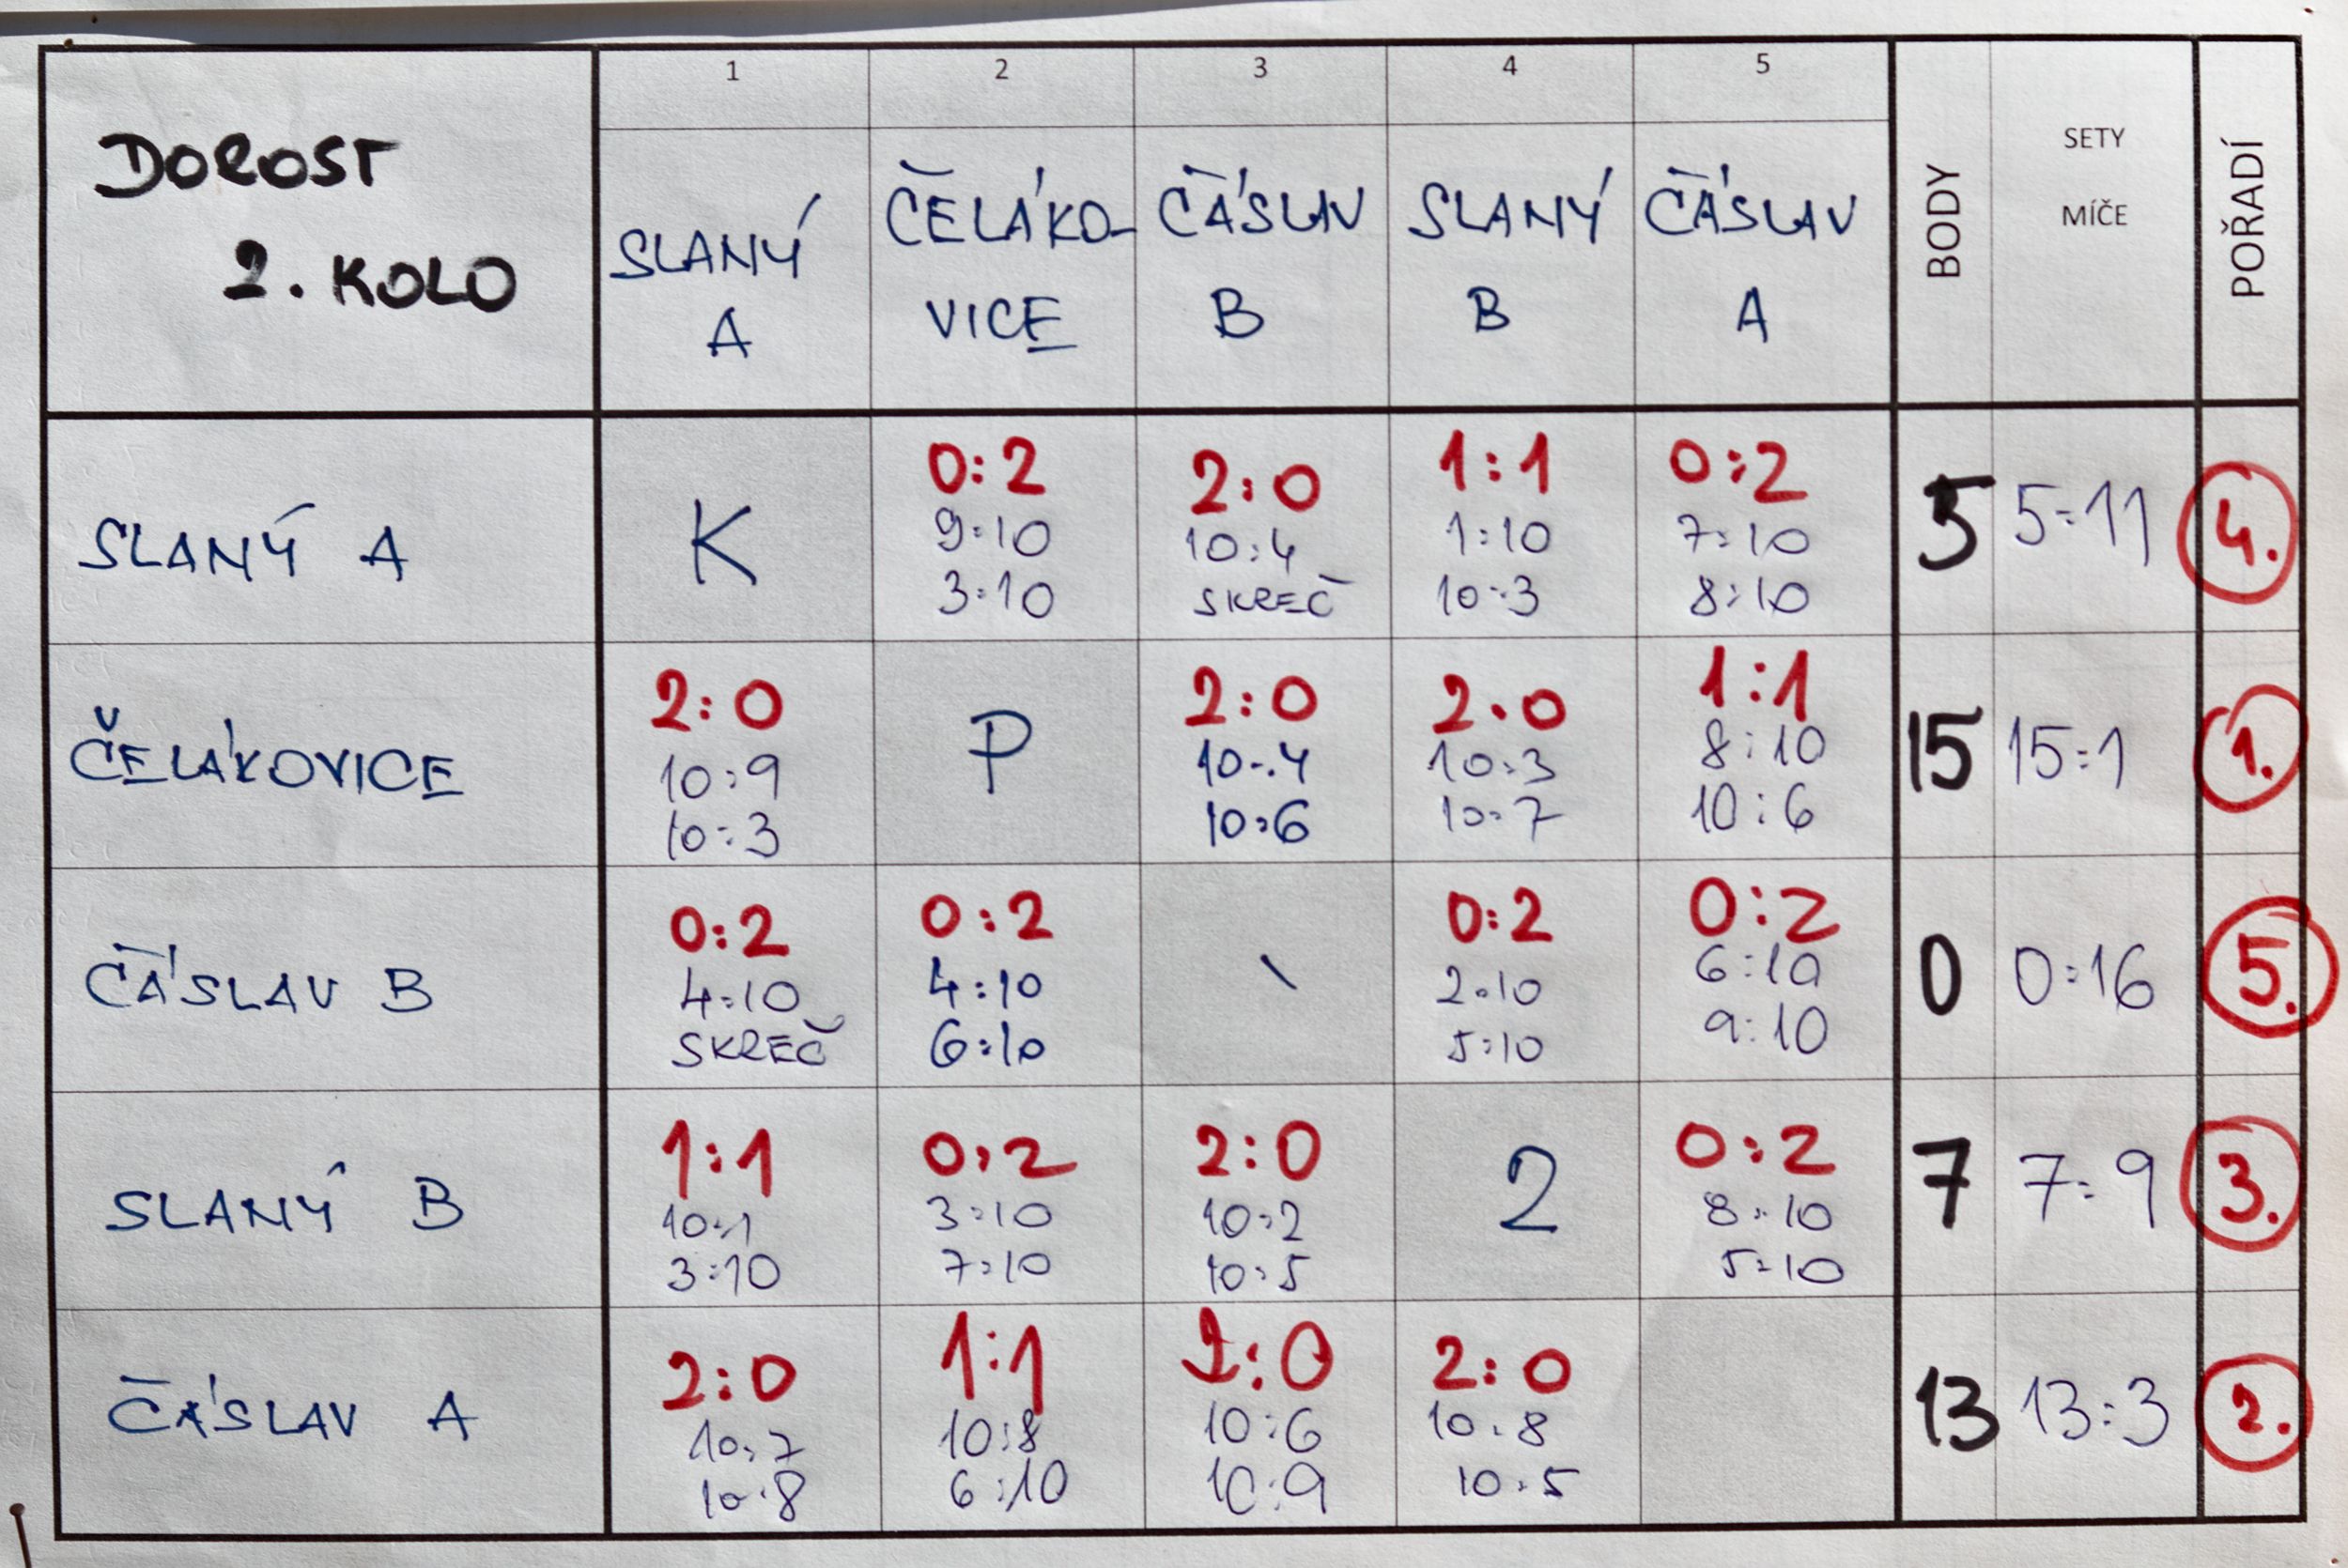 DOROST
2. KOLO
1 2 3 4 5
SLANÝ A
ČELÁKO-VICE
ČÁSLAV B
SLANÝ B
ČÁSLAV A
BODY
SETY
MÍČE
POŘADÍ
SLANÝ A
K
0:2
9:10
3:10
2:0
10:4
SKREČ
1:1
1:10
10:3
0:2
7:10
8:10
5
5:11
4.
ČELÁKOVICE
2:0
10:9
10:3
P
2:0
10:4
10:6
2:0
10:3
10:7
1:1
8:10
10:6
15
15:1
1.
ČÁSLAV B
0:2
4:10
SKREČ
0:2
4:10
6:10
0:2
2:10
5:10
0:2
6:10
9:10
0
0:16
5.
SLANÝ B
1:1
10:1
3:10
0:2
3:10
7:10
2:0
10:2
10:5
2
0:2
8:10
5:10
7
7:9
3.
ČÁSLAV A
2:0
10:7
10:8
1:1
10:8
6:10
2:0
10:6
10:9
2:0
10:8
10:5
13
13:3
2.